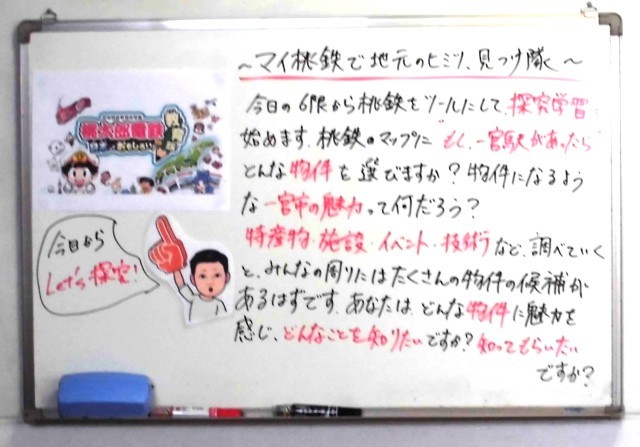 ～マイ桃鉄で地元のヒミツ、見つけ隊～
今日の6限から桃鉄をツールにして、探究学習
始めます。桃鉄のマップに もし、一宮駅があったら
どんな物件を選びますか？物件になるよう
な一宮市の魅力って何だろう？
特産物・施設・イベント・技術など、調べていく
と、みんなの周りにはたくさんの物件の候補が
あるはずです。あなたは、どんな物件に魅力を
感じ、どんなことを知りたいですか？知ってもらいたい
ですか？
桃太郎電鉄
教育版
日本っておもしろい!
今日から
Let's 探究!